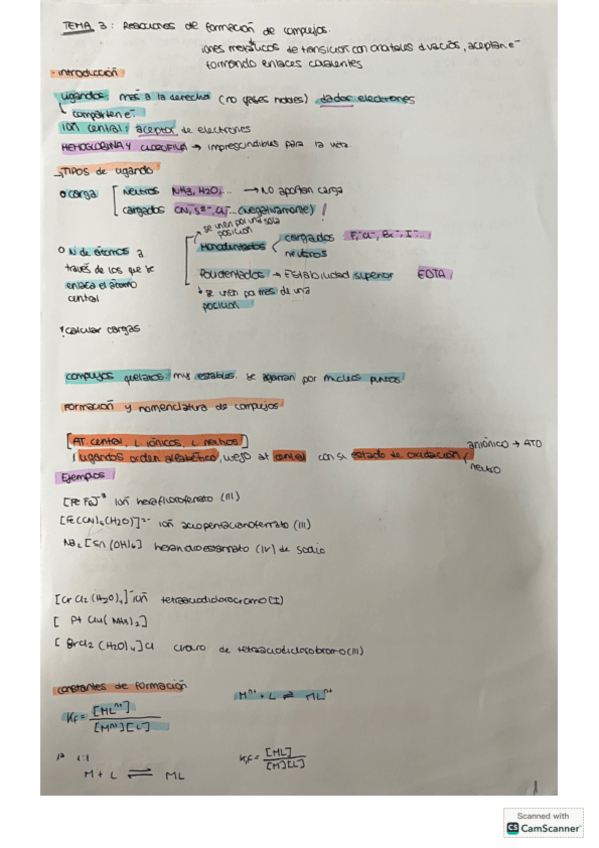 TEMA 3: Reacciones de formación de complejos.
iones metálicos de transición con orbitales d vacíos, aceptan e⁻
formando enlaces covalentes
· introducción
Ligandos: más a la derecha (no gases nobles) dados electrones
comparten e⁻
ion central: aceptor de electrones
HEMOGLOBINA Y CLOROFILA → imprescindibles para la vida.
→ TIPOS de ligando
o carga
Neutros NH3, H2O, ... → NO aportan carga
cargados CN, S²⁻, Cl⁻... (negativamente)!
→ se unen por una sola
posición
o N de átomos a
través de los que se
enlaza el átomo
central
Monodentados
cargados F⁻, Cl⁻, Br⁻, I⁻...
neutros
Polidentados → Estabilidad superior EDTA
↓ se unen por más de una
posición
! calcular cargas
complejos quelatos: muy estables. se agarran por muchos puntos
Formación y nomenclatura de complejos
[AT. central, L iónicos, L neutros]
ligandos orden alfabético, luego at central con su estado de oxidación
aniónico → ATO
neutro
Ejemplos
[Fe F6]³⁻ ión hexafluoroferrato (III)
[Fe(CN)5(H2O)]²⁻ ión acuopentacianoferrato (III)
Na2 [Sn (OH)6] hexahidroxoestannato (IV) de sodio
[Cr Cl2 (H2O)4]⁻ ión tetraacuodiclorocromo (I)
[ Pt (NH3)2]
[ BrCl2 (H2O)4] Cl cloruro de tetraacuodiclorobromo (III)
constantes de formación
Mⁿ⁺ + L ⇌ MLⁿ⁺
Kf = [MLⁿ⁺] / [Mⁿ⁺][L]
1:1
M + L ⇌ ML
Kf = [ML] / [M][L]
1
Scanned with
CS CamScanner